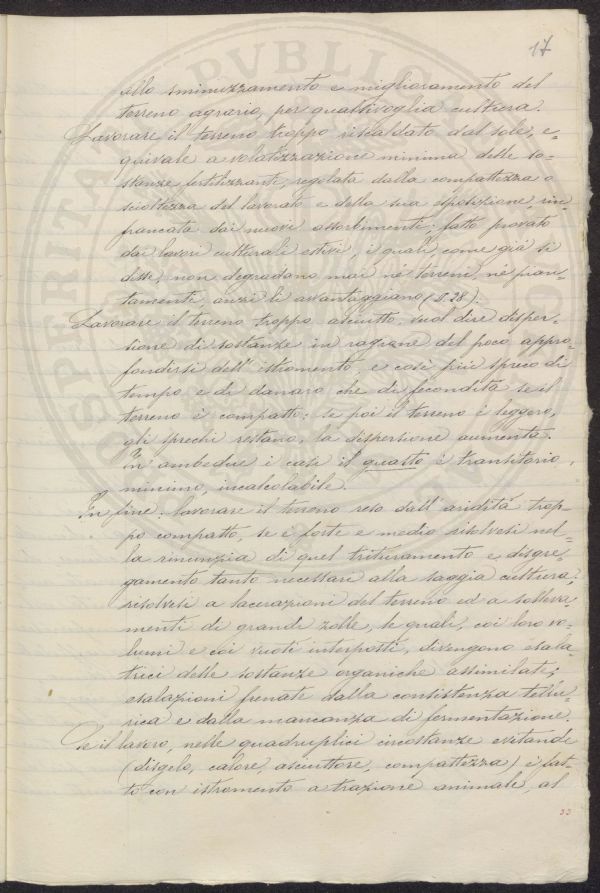 17
allo sminuzzamento e miglioramento del
terreno agrario, per qualsivoglia cultura.
Lavorare il terreno troppo riscaldato dal sole, e-
quivale a volatizzazione minima delle so-
stanze fertilizzanti, regolata dalla compattezza o
scioltezza del lavorato e della sua esposizione, rin-
francata dai nuovi assorbimenti; fatto provato
dai lavori culturali estivi, i quali, come già si
disse, non degradano mai nè terreni, nè pian-
tamente, anzi li avvantaggiano (§.28).
Lavorare il terreno troppo asciutto, vuol dire disper-
sione di sostanze in ragione del poco appro-
fondirsi dell'istromento, e così più spreco di
tempo e di danaro che di fecondità se il
terreno è compatto: se poi il terreno è leggero,
gli sprechi restano, la dispersione aumenta.
In ambedue i casi il guasto è transitorio,
minimo, incalcolabile.
In fine: lavorare il terreno reso dall'aridità trop-
po compatto, se è forte e medio risolvesi nel-
la rinunzia di quel trituramento e disgre-
gamento tanto necessari alla saggia cultura;
risolvesi a lacerazioni del terreno ed a solleva-
menti di grande zolle, le quali, coi loro vo-
lumi e coi vuoti interposti, divengono esala-
trici delle sostanze organiche assimilate;
esalazioni frenate dalla consistenza tellu-
rica e dalla mancanza di fermentazione.
Se il lavoro, nelle quadruplici circostanze evitande
(disgelo, calore, asciuttore, compattezza) è fat-
to con istromento a trazione animale, al
33
PVBLIC
OSPERITA